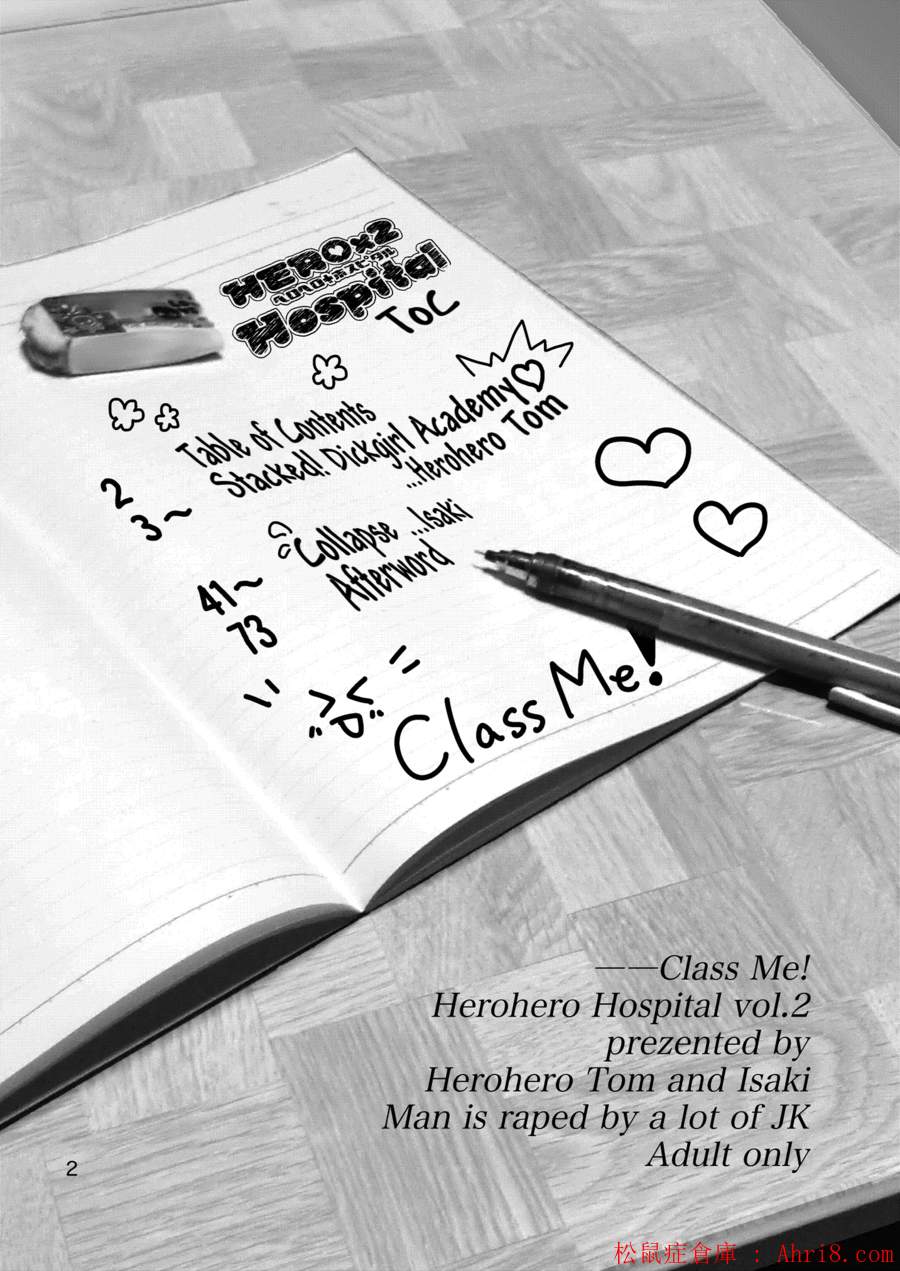 HERO×2
ヘロヘロホスピタル
Hospital
ToC
2 Table of Contents
3~ Stacked! Dickgirl Academy♡
...Herohero Tom
41~ Collapse ...Isaki
73 Afterword
Class Me!
——Class Me!
Herohero Hospital vol.2
prezented by
Herohero Tom and Isaki
Man is raped by a lot of JK
Adult only
2
松鼠症倉庫 : Ahri8.com